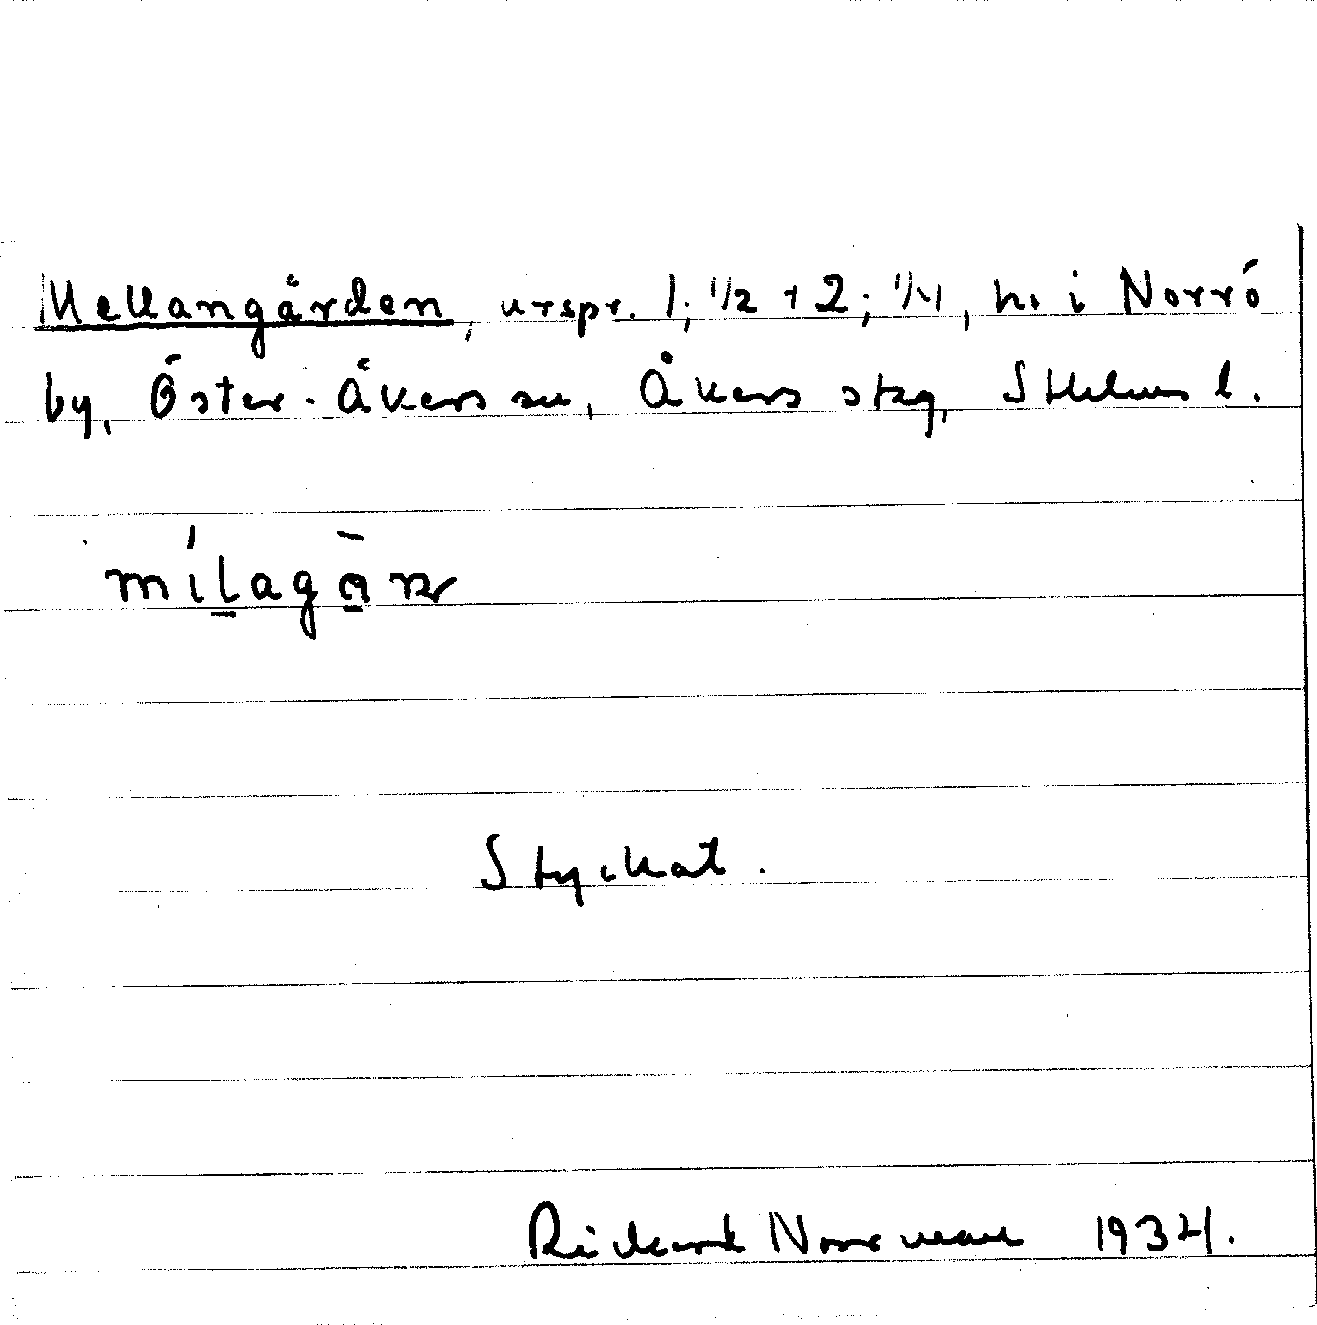 Mellangården, urspr. 1; 1/2 + 2; 1/4, h. i Norrö
by, Öster-Åkers sn, Åkers skg, Sthlms l.
mílagā̱ɳ
Styckat.
Rickard Norrman 1934.